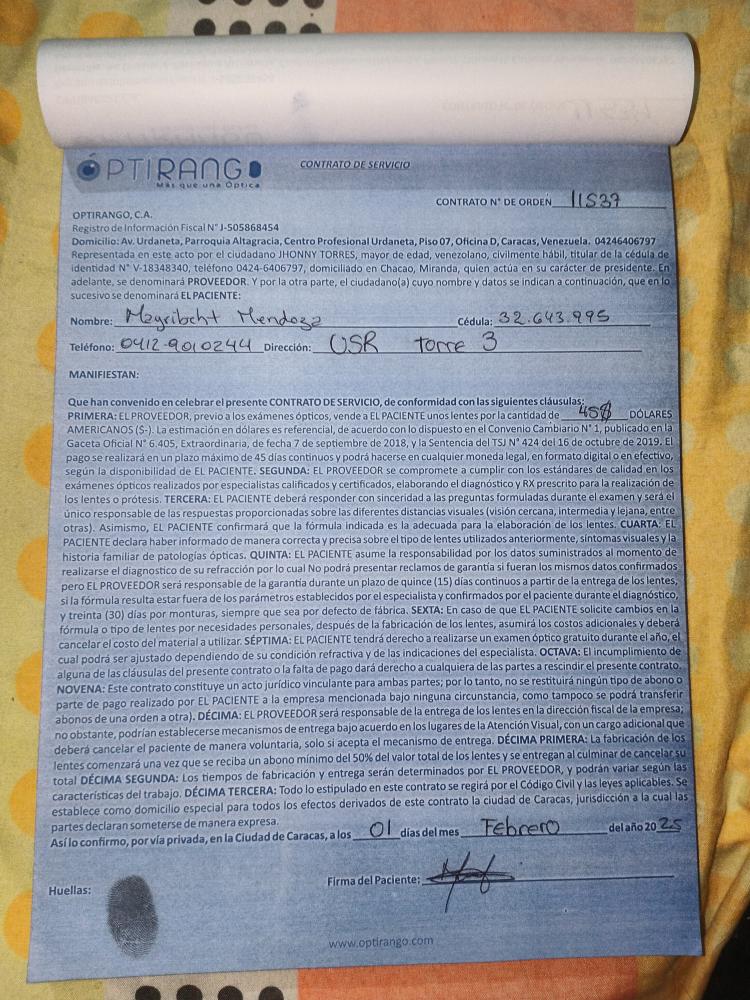 OPTIRANGO
Más que una Óptica
CONTRATO DE SERVICIO
CONTRATO N° DE ORDEN 11537
OPTIRANGO, C.A.
Registro de Información Fiscal N° J-505868454
Domicilio: Av. Urdaneta, Parroquia Altagracia, Centro Profesional Urdaneta, Piso 07, Oficina D, Caracas, Venezuela. 04246406797
Representada en este acto por el ciudadano JHONNY TORRES, mayor de edad, venezolano, civilmente hábil, titular de la cédula de
identidad N° V-18348340, teléfono 0424-6406797, domiciliado en Chacao, Miranda, quien actúa en su carácter de presidente. En
adelante, se denominará PROVEEDOR. Y por la otra parte, el ciudadano(a) cuyo nombre y datos se indican a continuación, que en lo
sucesivo se denominará EL PACIENTE:
Nombre: Mendoza Cédula: 32.643.995
Teléfono: 0412-9010244 Dirección: USR Torre 3
MANIFIESTAN:
Que han convenido en celebrar el presente CONTRATO DE SERVICIO, de conformidad con las siguientes cláusulas:
PRIMERA: EL PROVEEDOR, previo a los exámenes ópticos, vende a EL PACIENTE unos lentes por la cantidad de 45$ DÓLARES
AMERICANOS ($-). La estimación en dólares es referencial, de acuerdo con lo dispuesto en el Convenio Cambiario N° 1, publicado en la
Gaceta Oficial N° 6.405, Extraordinaria, de fecha 7 de septiembre de 2018, y la Sentencia del TSJ N° 424 del 16 de octubre de 2019. El
pago se realizará en un plazo máximo de 45 días continuos y podrá hacerse en cualquier moneda legal, en formato digital o en efectivo,
según la disponibilidad de EL PACIENTE. SEGUNDA: EL PROVEEDOR se compromete a cumplir con los estándares de calidad en los
exámenes ópticos realizados por especialistas calificados y certificados, elaborando el diagnóstico y RX prescrito para la realización de
los lentes o prótesis. TERCERA: EL PACIENTE deberá responder con sinceridad a las preguntas formuladas durante el examen y será el
único responsable de las respuestas proporcionadas sobre las diferentes distancias visuales (visión cercana, intermedia y lejana, entre
otras). Asimismo, EL PACIENTE confirmará que la fórmula indicada es la adecuada para la elaboración de los lentes. CUARTA: EL
PACIENTE declara haber informado de manera correcta y precisa sobre el tipo de lentes utilizados anteriormente, síntomas visuales y la
historia familiar de patologías ópticas. QUINTA: EL PACIENTE asume la responsabilidad por los datos suministrados al momento de
realizarse el diagnóstico de su refracción por lo cual No podrá presentar reclamos de garantía si fueran los mismos datos confirmados
pero EL PROVEEDOR será responsable de la garantía durante un plazo de quince (15) días continuos a partir de la entrega de los lentes,
si la fórmula resulta estar fuera de los parámetros establecidos por el especialista y confirmados por el paciente durante el diagnóstico,
y treinta (30) días por monturas, siempre que sea por defecto de fábrica. SEXTA: En caso de que EL PACIENTE solicite cambios en la
fórmula o tipo de lentes por necesidades personales, después de la fabricación de los lentes, asumirá los costos adicionales y deberá
cancelar el costo del material a utilizar. SÉPTIMA: EL PACIENTE tendrá derecho a realizarse un examen óptico gratuito durante el año, el
cual podrá ser ajustado dependiendo de su condición refractiva y de las indicaciones del especialista. OCTAVA: El incumplimiento de
alguna de las cláusulas del presente contrato o la falta de pago dará derecho a cualquiera de las partes a rescindir el presente contrato.
NOVENA: Este contrato constituye un acto jurídico vinculante para ambas partes; por lo tanto, no se restituirá ningún tipo de abono o
parte de pago realizado por EL PACIENTE a la empresa mencionada bajo ninguna circunstancia, como tampoco se podrá transferir
abonos de una orden a otra). DÉCIMA: EL PROVEEDOR será responsable de la entrega de los lentes en la dirección fiscal de la empresa;
no obstante, podrían establecerse mecanismos de entrega bajo acuerdo en los lugares de la Atención Visual, con un cargo adicional que
deberá cancelar el paciente de manera voluntaria, solo si acepta el mecanismo de entrega. DÉCIMA PRIMERA: La fabricación de los
lentes comenzará una vez que se reciba un abono mínimo del 50% del valor total de los lentes y se entregan al culminar de cancelar su
total DÉCIMA SEGUNDA: Los tiempos de fabricación y entrega serán determinados por EL PROVEEDOR, y podrán variar según las
características del trabajo. DÉCIMA TERCERA: Todo lo estipulado en este contrato se regirá por el Código Civil y las leyes aplicables. Se
establece como domicilio especial para todos los efectos derivados de este contrato la ciudad de Caracas, jurisdicción a la cual las
partes declaran someterse de manera expresa.
Así lo confirmo, por vía privada, en la Ciudad de Caracas, a los 01 días del mes Febrero del año 2025
Huellas:
Firma del Paciente:
www.optirango.com